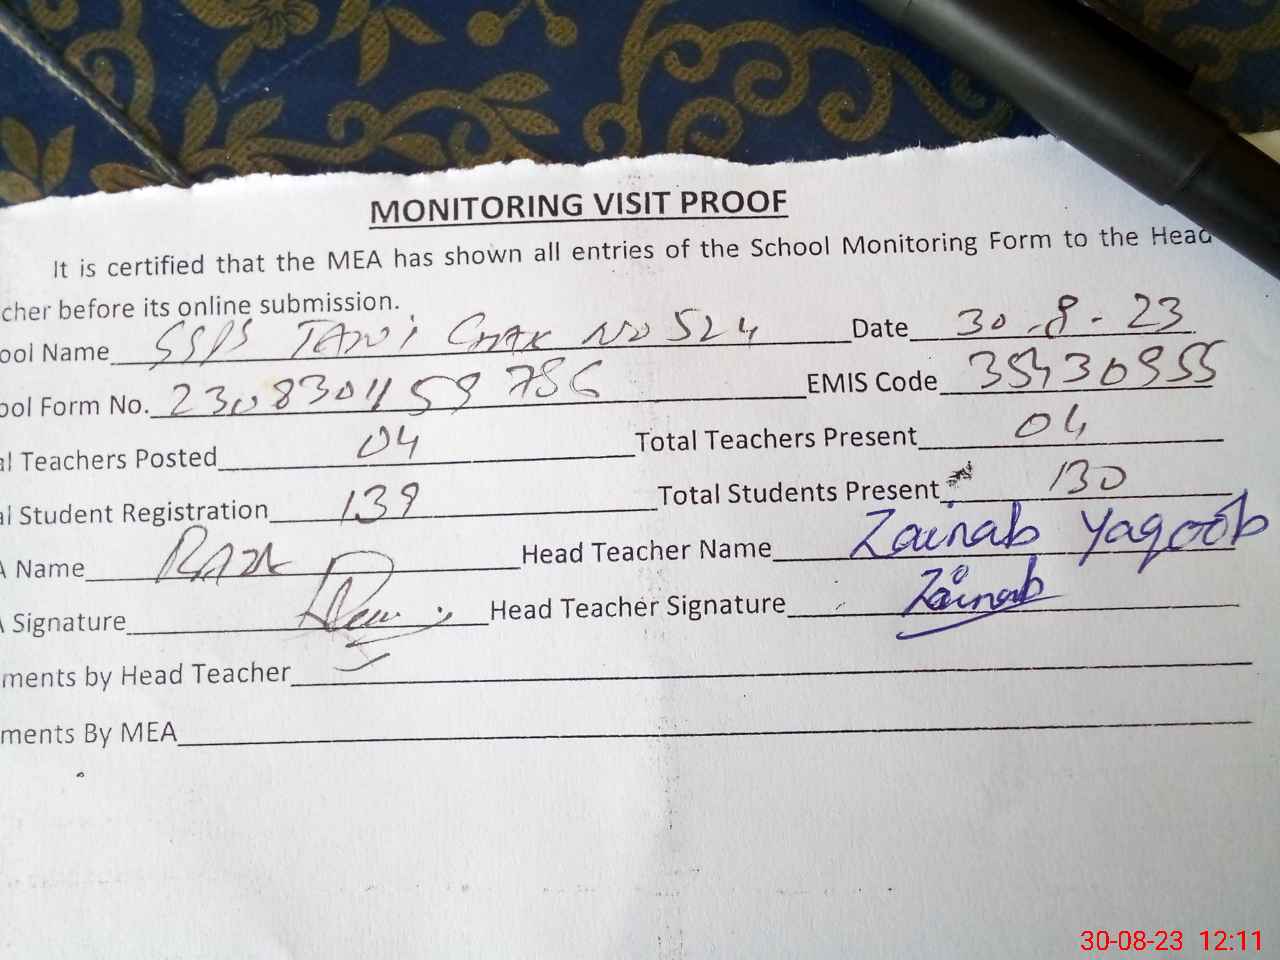 MONITORING VISIT PROOF
It is certified that the MEA has shown all entries of the School Monitoring Form to the Head
cher before its online submission.
ool Name SSPS Chak NO 524 Date 30-8-23
ool Form No. 230830115 EMIS Code
al Teachers Posted 04 Total Teachers Present 04
al Student Registration 139 Total Students Present 130
A Name RAZA Head Teacher Name Zainab Yaqoob
A Signature Head Teacher Signature Zainab
ments by Head Teacher
ments By MEA
30-08-23 12:11